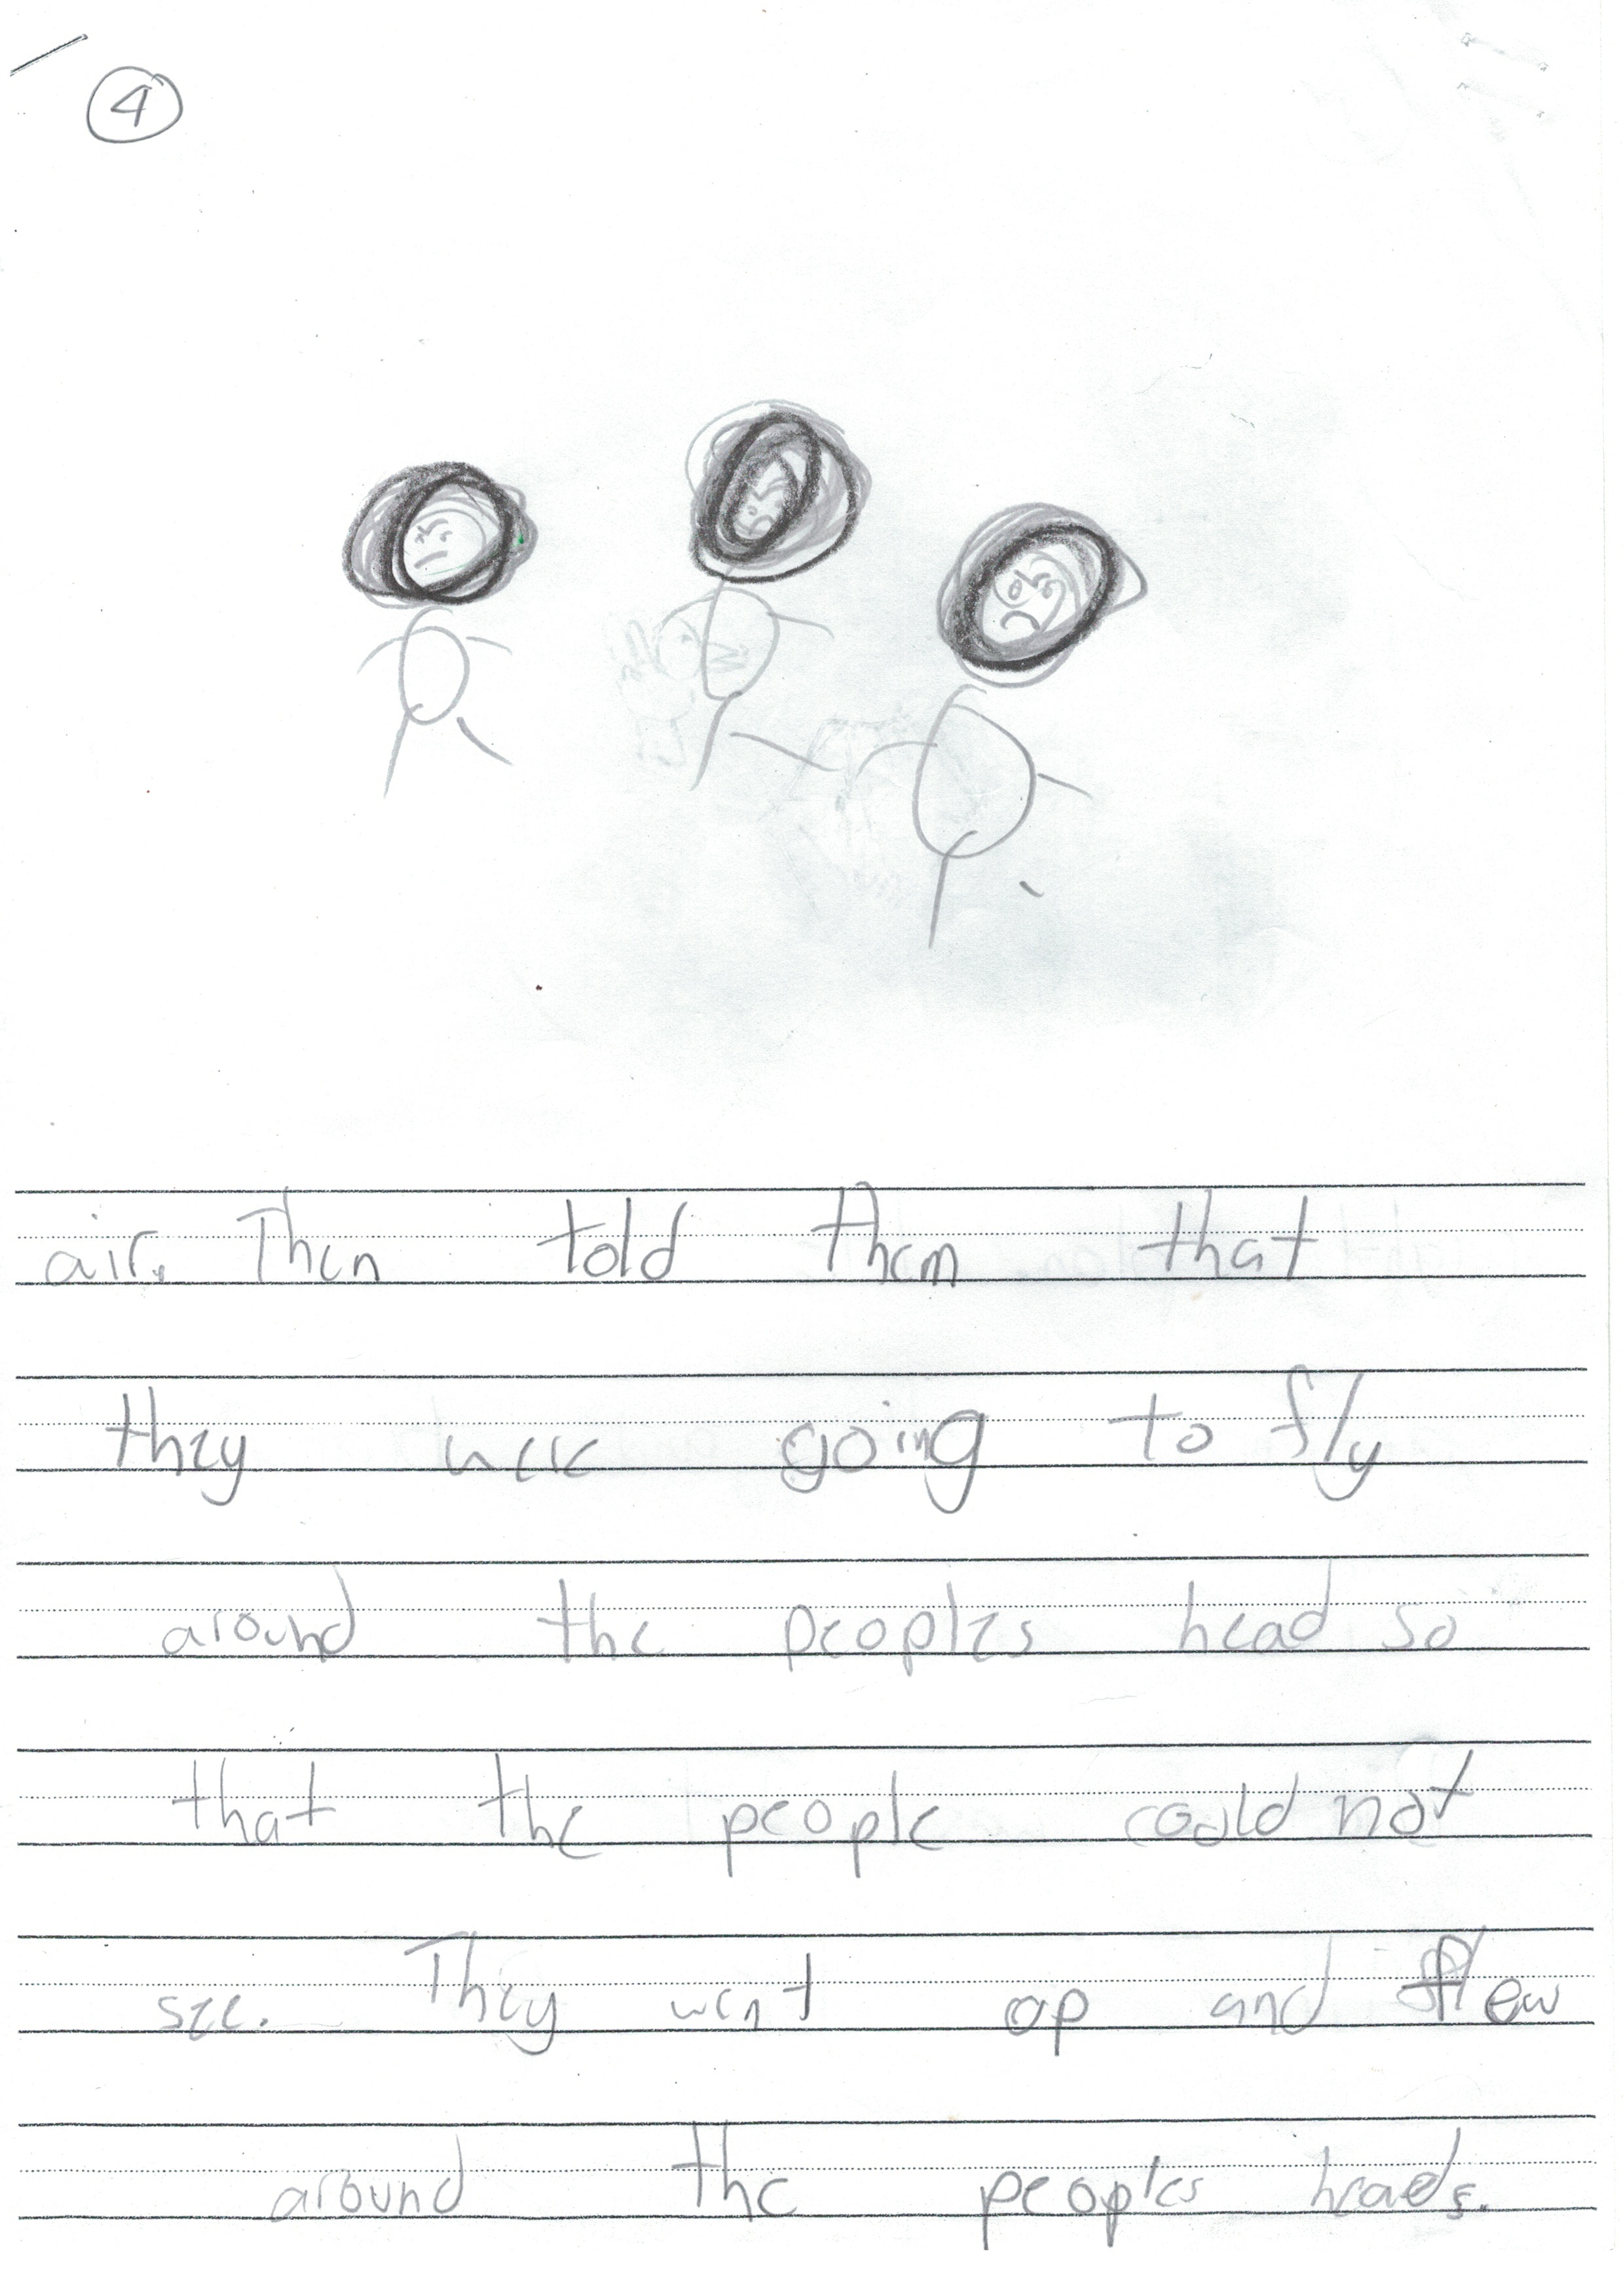 4
air. Then told them that
they were going to fly
around the peoples head so
that the people could not
see. They went op and flew
around the peoples heads.